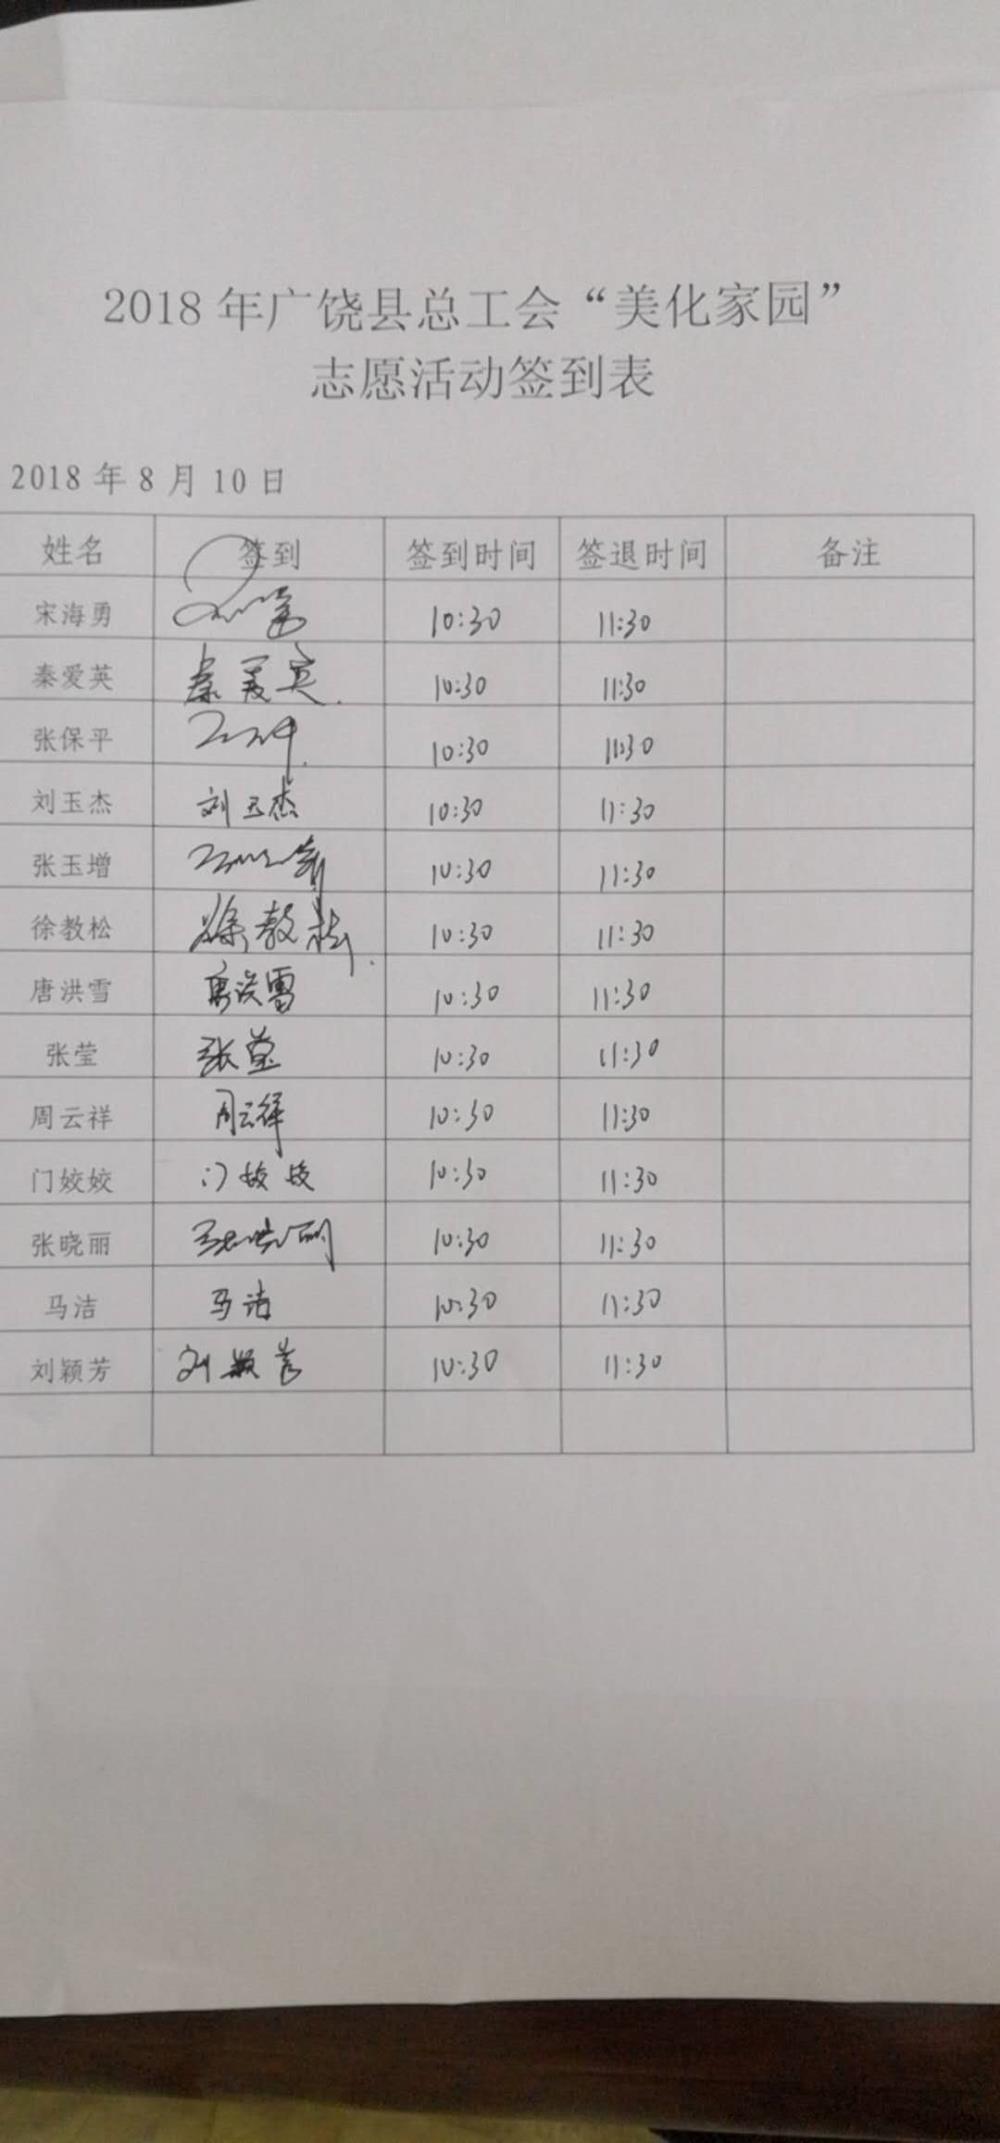 2018 年广饶县总工会“美化家园”
志愿活动签到表
2018 年 8 月 10 日
姓名 签到 签到时间 签退时间 备注
宋海勇 10:30 11:30
秦爱英 秦爱英 10:30 11:30
张保平 10:30 11:30
刘玉杰 刘玉杰 10:30 11:30
张玉增 10:30 11:30
徐教松 徐教松 10:30 11:30
唐洪雪 唐洪雪 10:30 11:30
张莹 张莹 10:30 11:30
周云祥 周云祥 10:30 11:30
门姣姣 门姣姣 10:30 11:30
张晓丽 张晓丽 10:30 11:30
马洁 马洁 10:30 11:30
刘颖芳 刘颖芳 10:30 11:30